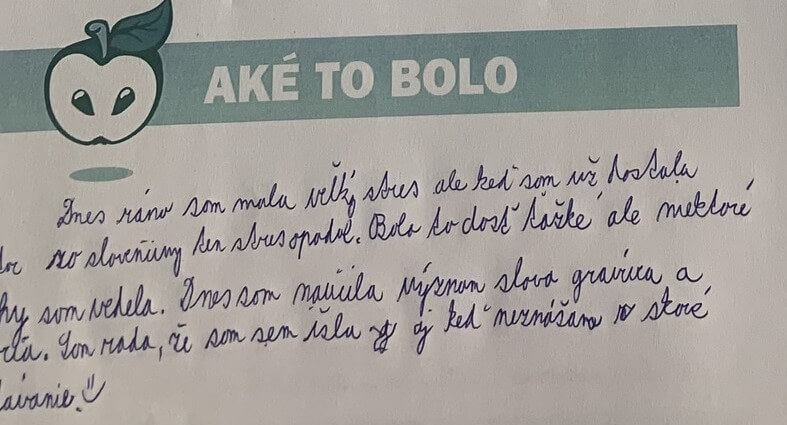 AKÉ TO BOLO
Dnes ráno som mala veľký stres ale keď som už dostala
zo slovenčiny ten stres opadol. Bolo to dosť ťažké ale niektoré
som vedela. Dnes som naučila význam slova gravúra a
Som rada, že som sem išla aj keď neznášam skoré